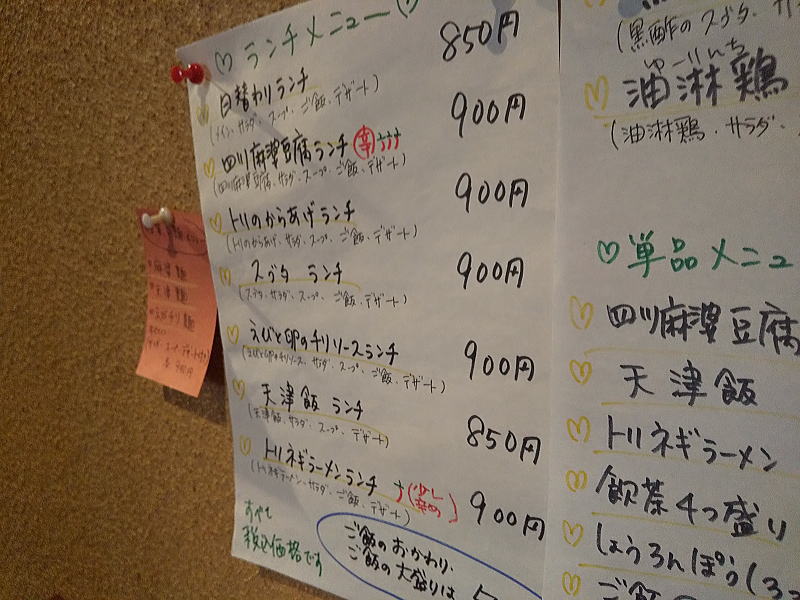 ランチメニュー
日替わりランチ 850円
(メイン、サラダ、スープ、ご飯、デザート)
四川麻婆豆腐ランチ 辛 900円
(四川麻婆豆腐、サラダ、スープ、ご飯、デザート)
トリのからあげランチ 900円
(トリのからあげ、サラダ、スープ、ご飯、デザート)
スブタ ランチ 900円
(スブタ、サラダ、スープ、ご飯、デザート)
えびと卵のチリソースランチ 900円
(えびと卵のチリソース、サラダ、スープ、ご飯、デザート)
天津飯 ランチ 850円
(天津飯、サラダ、スープ、デザート)
トリネギラーメンランチ (少し辛め) 900円
(トリネギラーメン、サラダ、ご飯、デザート)
すべて
税込価格です
ご飯のおかわり、
ご飯の大盛りは
(黒酢のスブタ、サ
ゆーりんち
油淋鶏
(油淋鶏、サラダ、
単品メニュ
四川麻婆豆腐
天津飯
トリネギラーメン
飲茶4つ盛り
しょうろんぽう(3コ
ご飯
麻婆麺
天津麺